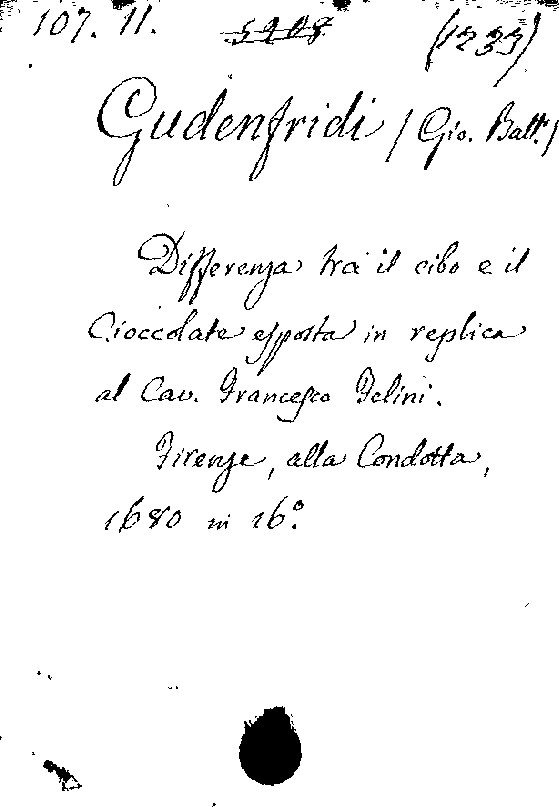 107. 11. 5908 (1233)
Gudenfridi / Gio. Batt. /
Differenza tra il cibo e il
Cioccolate esposta in replica
al Cav. Francesco Felini.
Firenze, alla Condotta,
1680 in 16°.